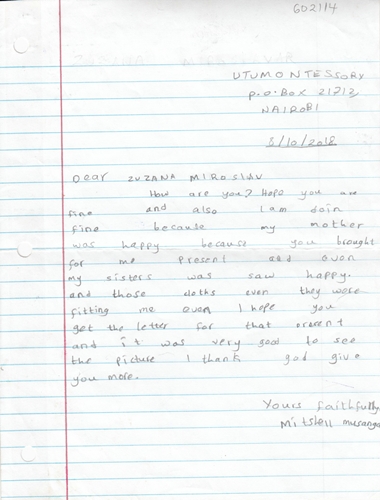 GO2114
UTUMONTESSORY
P.O.BOX 21712
NAIROBI
5/10/2018
Dear ZUZANA MIROSLAV
How are you? Hope you are
fine and also I am doin
fine because my mother
was happy because you brought
for me present and even
my sisters was saw happy.
and those cloths even they were
fitting me even I hope you
get the letter for that present
and it was very good to see
the picture I thank god give
you more.
Yours faithfully
Mitshell musanga